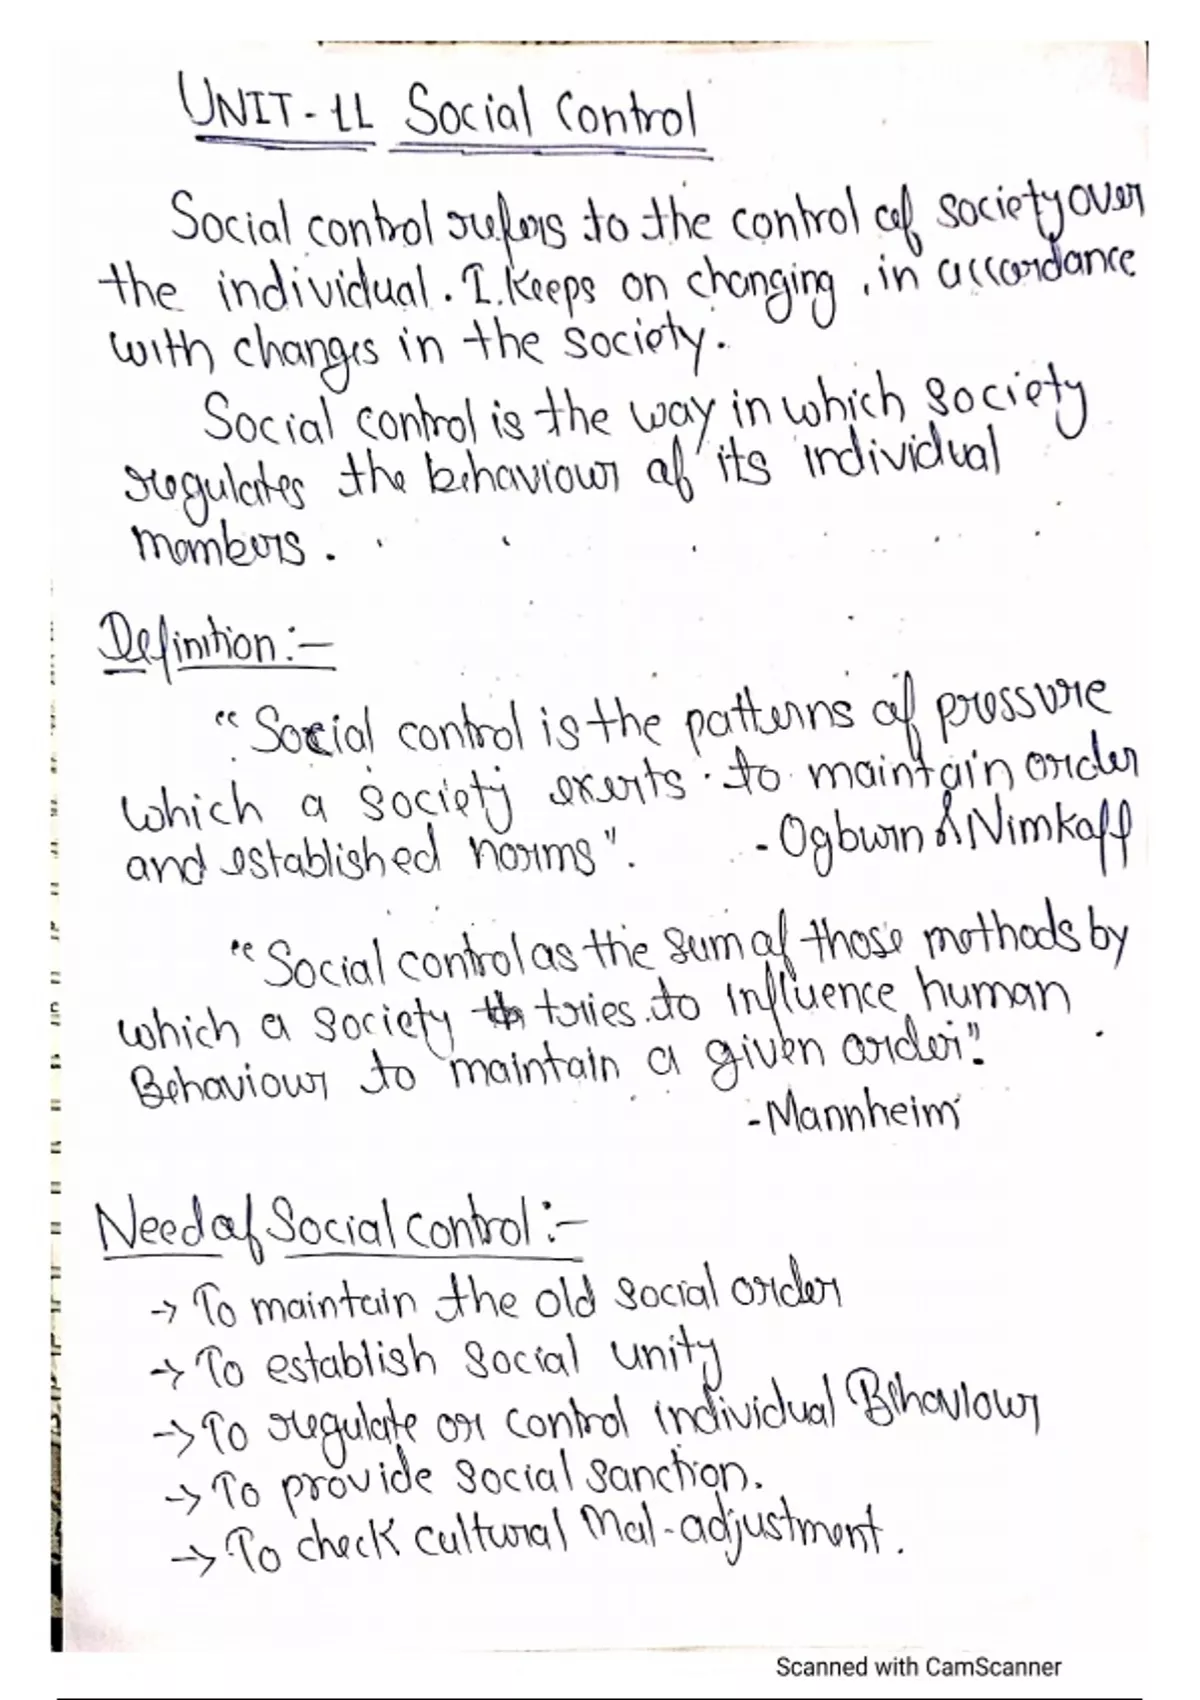 UNIT-11 Social Control
Social control refers to the control of society over
the individual. I. Keeps on changing, in accordance
with changes in the society.
Social control is the way in which society
regulates the behaviour of its individual
members.
Definition:-
"Social control is the patterns of pressure
which a society exerts to maintain order
and established norms". - Ogburn & Nimkoff
"Social control as the sum of those methods by
which a society tries to influence human
Behaviour to maintain a given order".
-Mannheim
Need of Social control:-
→ To maintain the old social order
→ To establish social unity
→ To regulate or control individual Behaviour
→ To provide social sanction.
→ To check cultural Mal-adjustment.
Scanned with CamScanner